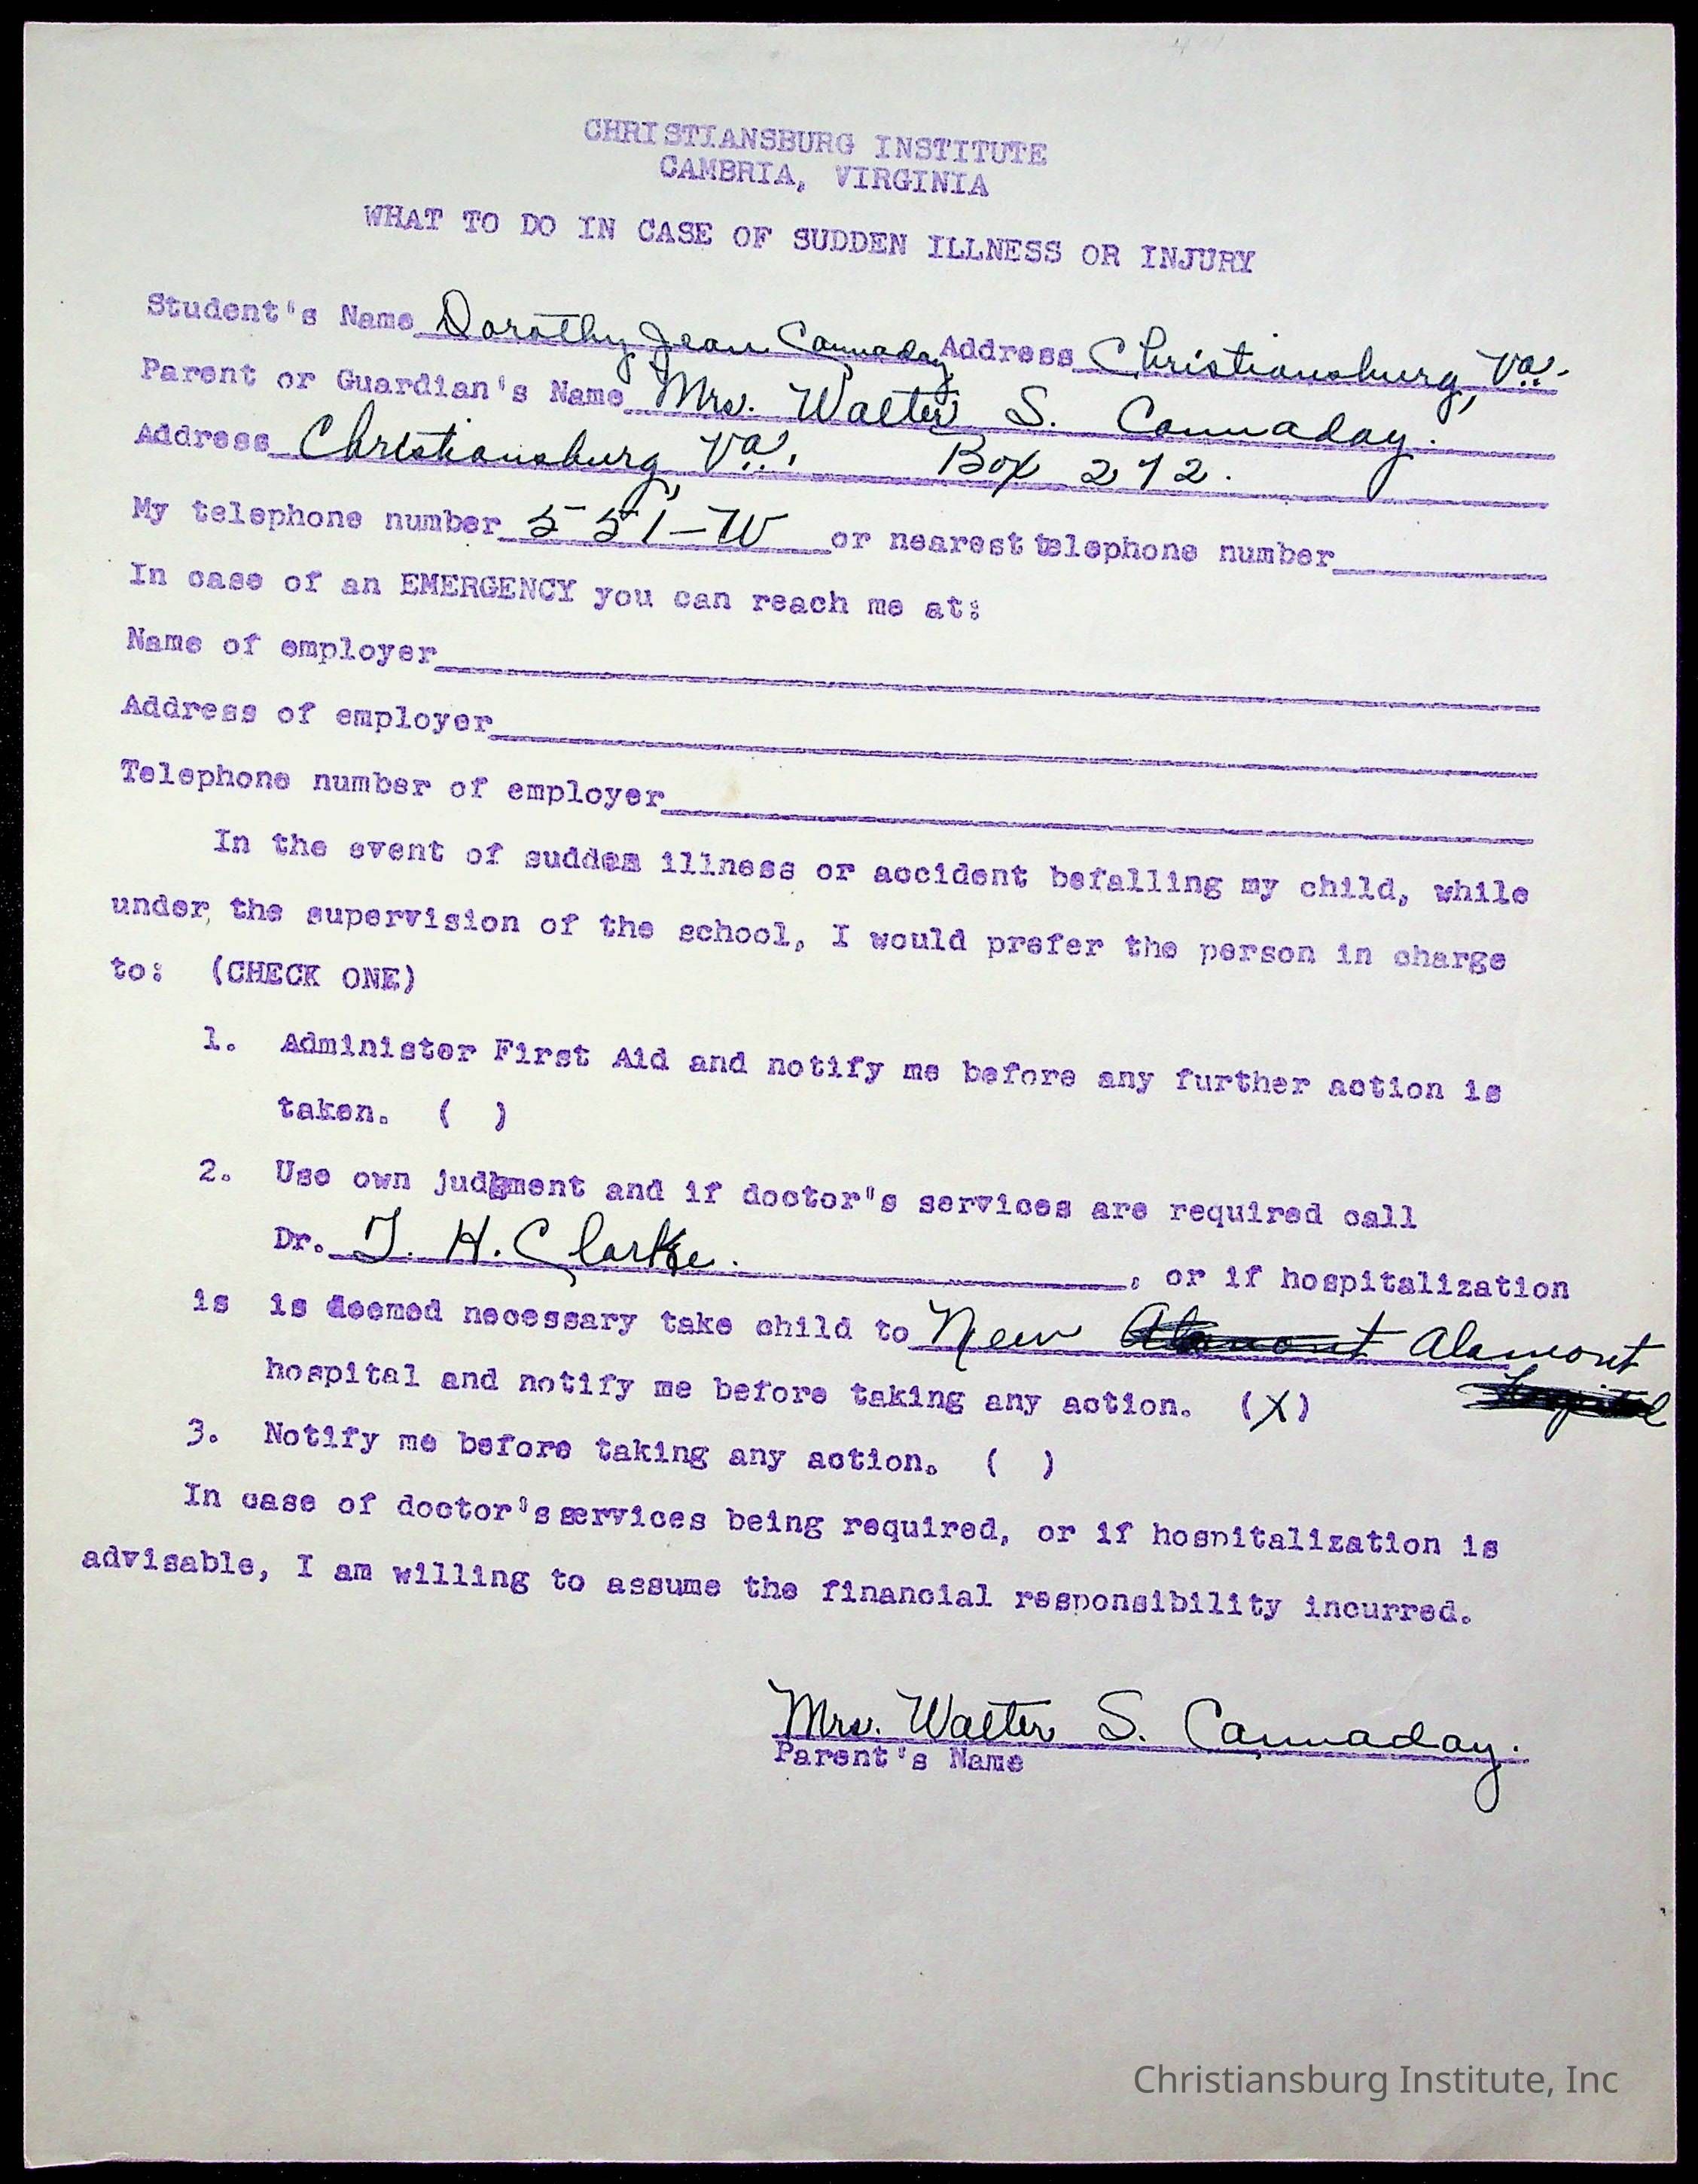 CHRISTIANSBURG INSTITUTE
CAMBRIA, VIRGINIA
WHAT TO DO IN CASE OF SUDDEN ILLNESS OR INJURY
Student's Name Dorothy Jean Cannaday Address Christiansburg, Va.
Parent or Guardian's Name Mrs. Walter S. Cannaday.
Address Christiansburg, Va. Box 272.
My telephone number 551-W or nearest telephone number
In case of an EMERGENCY you can reach me at:
Name of employer
Address of employer
Telephone number of employer
In the event of sudden illness or accident befalling my child, while
under the supervision of the school, I would prefer the person in charge
to: (CHECK ONE)
1. Administer First Aid and notify me before any further action is
taken. ( )
2. Use own judgment and if doctor's services are required call
Dr. T. H. Clarke. , or if hospitalization
is is deemed necessary take child to New Alamont Alamont
hospital and notify me before taking any action. (X) hospital
3. Notify me before taking any action. ( )
In case of doctor's services being required, or if hospitalization is
advisable, I am willing to assume the financial responsibility incurred.
Mrs. Walter S. Cannaday.
Parent's Name
Christiansburg Institute, Inc